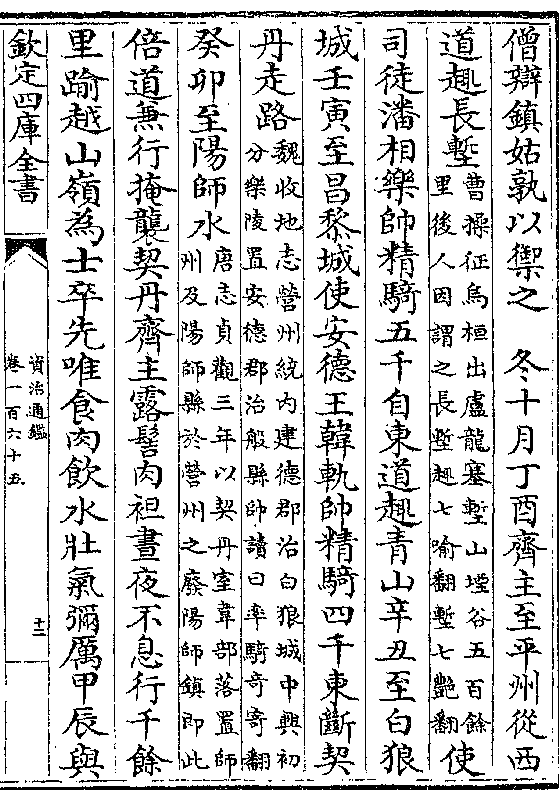 僧辯鎮姑孰以禦之　冬十月丁酉齊主至平州從西
道趣長塹曹操征烏桓出盧龍塞塹山堙谷五百餘里後人因謂之長塹趣七喻翻塹七艷翻使
司徒潘相樂帥精騎五千自東道趣青山辛丑至白狼
城壬寅至昌黎城使安德王韓軌帥精騎四千東斷契
丹走路魏收地志營州統内建德郡治白狼城中興初分樂陵置安德郡治般縣帥讀曰率騎奇寄翻
癸卯至陽師水唐志貞觀三年以契丹室韋部落置師州及陽師縣於營州之廢陽師鎮即此
倍道兼行掩襲契丹齊主露髻肉袒晝夜不息行千餘
里踰越山嶺為士卒先唯食肉飲水壯氣彌厲甲辰與
欽定四庫全書
資治通鑑
卷一百六十五
十二